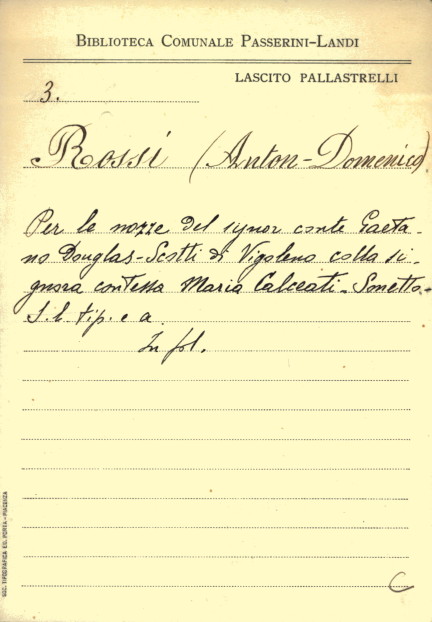 BIBLIOTECA COMUNALE PASSERINI-LANDI
LASCITO PALLASTRELLI
3.
Rossi (Anton-Domenico)
Per le nozze del signor conte Gaeta-
no Douglas-Scotti di Vigoleno colla si-
gnora contessa Maria Calceati-Sonetto-
S. l. tip. e a.
In fol.
SOC. TIPOGRAFICA ED. PORTA - PIACENZA
C